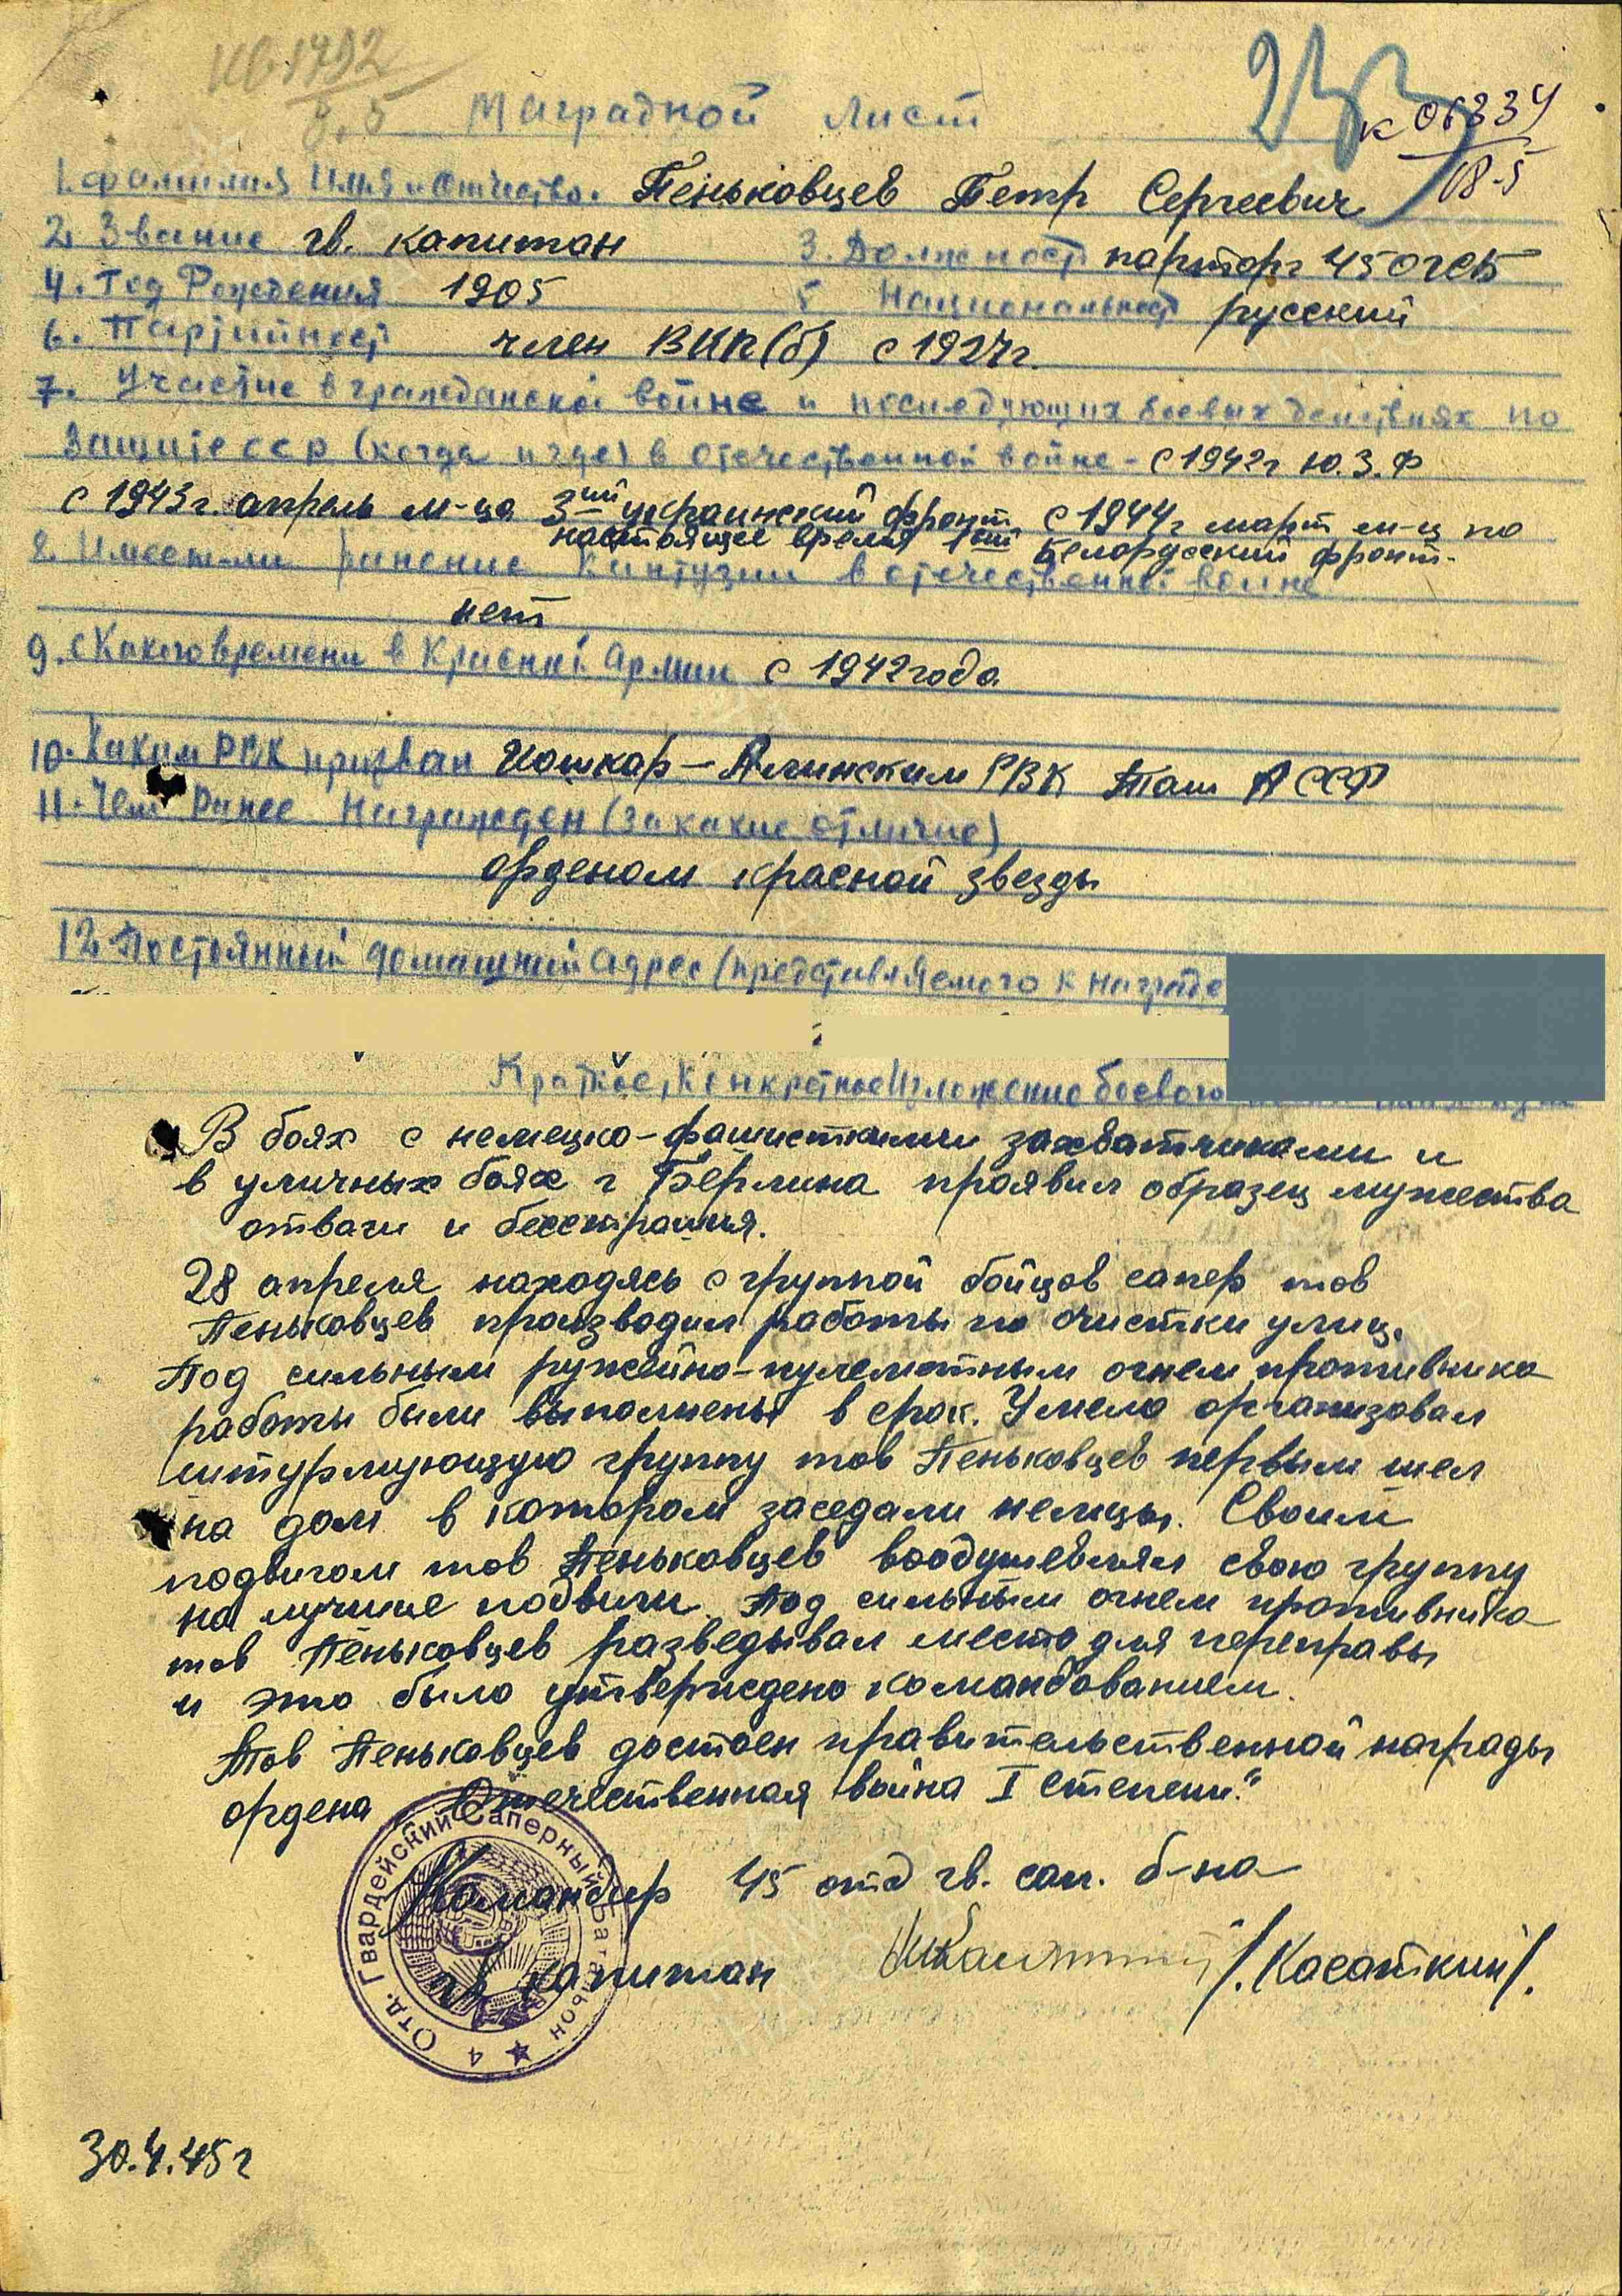 Наградной лист
к 06334
18-5
1. Фамилия Имя и Отчество. Пеньковцев Петр Сергеевич
2. Звание гв. капитан 3. Должност парторг 45 ОГСБ
4. Год Рождения 1905 5 Национальност русский
6. Партийност член ВКП(б) с 1927г.
7. Участие в гражданской войне и последующих боевых действиях по
защите ссср (когда и где) в отечественной войне - с 1942г Ю.З.Ф
с 1943г. апрель м-ца 3ий украинский фронт, с 1944г март м-ц по
настоящее время 1ый Белорусский фронт.
8. Имеет-ли ранение Контузии в отечественной войне
нет
9. с Каковаго времени в Красной Армии с 1942 года
10. Каким РВК призван Йошкар-Алинским РВК Тат АССР
11. Чем Ранее Награжден (за какие отличие)
орденом красной звезды
12 Постоянный домашний адрес (представляемого к награде
Краткое, Конкретное Изложение боевого
В боях с немецко-фашисткими захватчиками и
в уличных боях г Берлина проявил образец мужества
отваги и бесстрашия.
28 апреля находясь с группой бойцов сапер тов
Пеньковцев производил работы по очистки улиц.
Под сильным ружейно-пулеметным огнем противника
работы были выполнены в срок. Умело организовал
штурмующую группу тов Пеньковцев первым шел
на дом в котором заседали немцы. Своим
подвигом тов Пеньковцев воодушевлял свою группу
на лучшие подвиги. Под сильным огнем противника
тов Пеньковцев разведывал место для переправы
и это было утверждено командованием.
Тов Пеньковцев достоен правительственной награды
ордена „Отечественная война I степени."
Командир 45 отд гв. сап. б-на
гв капитан /Касаткин/.
Отд. Гвардейский Саперный Батальон
30.4.45г